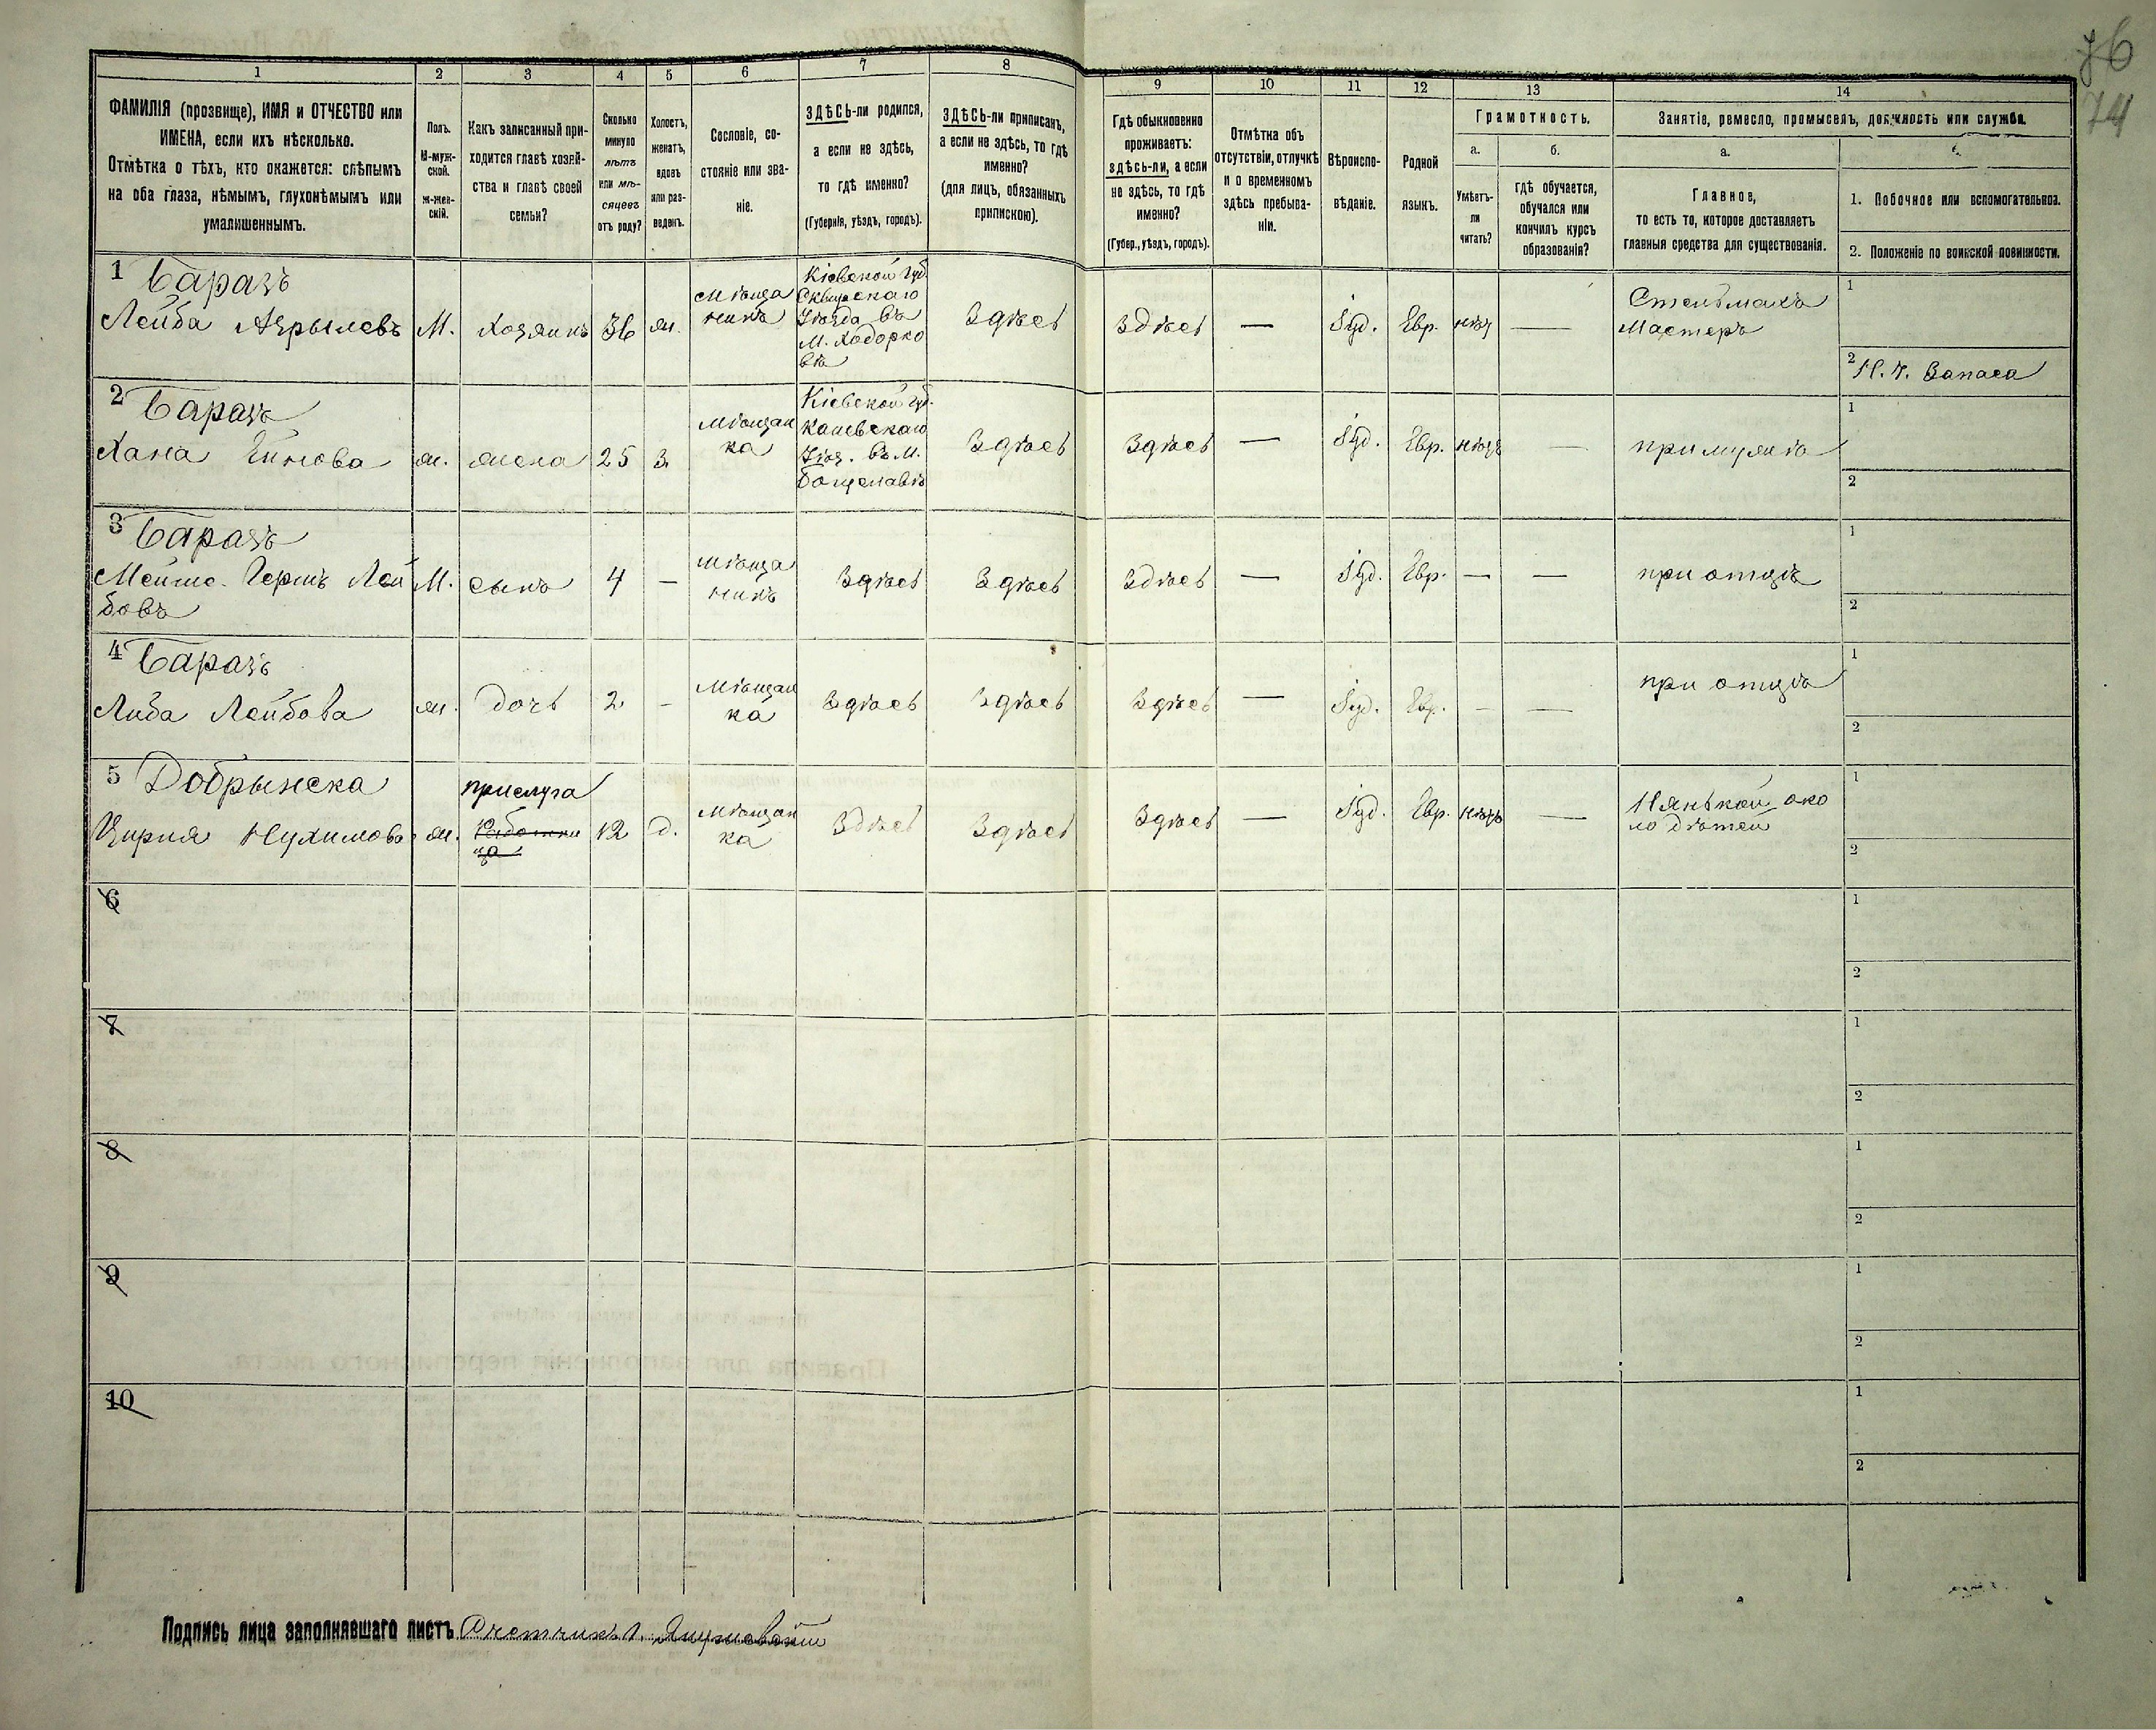 76
74
1
2
3
4
5
6
7
8
9
10
11
12
13
14
ФАМИЛІЯ (прозвище), ИМЯ и ОТЧЕСТВО или
ИМЕНА, если ихъ нѣсколько.
Отмѣтка о тѣхъ, кто окажется: слѣпымъ
на оба глаза, нѣмымъ, глухонѣмымъ или
умалишеннымъ.
Полъ.
М-муж-
ской.
ж-жен-
скій.
Какъ записанный при-
ходится главѣ хозяй-
ства и главѣ своей
семьи?
Сколько
минуло
лѣтъ
или мѣ-
сяцевъ
отъ роду?
Холостъ,
женатъ,
вдовъ
или раз-
веденъ.
Сословіе, со-
стояніе или зва-
ніе.
ЗДѢСЬ-ли родился,
а если не здѣсь,
то гдѣ именно?
(Губернія, уѣздъ, городъ).
ЗДѢСЬ-ли приписанъ,
а если не здѣсь, то гдѣ
именно?
(для лицъ, обязанныхъ
припискою).
Гдѣ обыкновенно
проживаетъ:
здѣсь-ли, а если
не здѣсь, то гдѣ
именно?
(Губер., уѣздъ, городъ).
Отмѣтка объ
отсутствіи, отлучкѣ
и о временномъ
здѣсь пребыва-
ніи.
Вѣроиспо-
вѣданіе.
Родной
языкъ.
Грамотность.
а.
Умѣетъ-
ли
читать?
б.
гдѣ обучается,
обучался или
кончилъ курсъ
образованія?
Занятіе, ремесло, промыселъ, должность или служба.
а.
Главное,
то есть то, которое доставляетъ
главныя средства для существованія.
1. Побочное или вспомогательное.
2. Положеніе по воинской повинности.
1 Баразъ
Лейба Азрылевъ
М.
Хозяинъ
36
ж.
Мѣща
нинъ
Кіевской губ.
Сквирскаго
Уѣзда въ
М. Ходорко
вѣ
Здѣсь
Здѣсь
—
Іуд.
Евр.
нѣтъ
—
Стельмахъ
Мастеръ
1
2 Н. Ч. Запаса
2 Баразъ
Хана
ж.
жена
25
З.
Мѣщан
ка
Кіевской губ.
Каневскаго
Уѣз. въ М.
Богуславѣ
Здѣсь
Здѣсь
—
Іуд.
Евр.
нѣтъ
—
при мужѣ
1
2
3 Баразъ
Лей
бовъ
М.
сынъ
4
—
Мѣща
нинъ
Здѣсь
Здѣсь
Здѣсь
—
Іуд.
Евр.
—
—
при отцѣ
1
2
4 Баразъ
Либа Лейбова
ж.
дочь
2
-
Мѣщан
ка
Здѣсь
Здѣсь
Здѣсь
—
Іуд.
Евр.
-
—
при отцѣ
1
2
5 Добрынска
Цирля Нухимова
ж.
прислуга
Работни
ца
12
д.
Мѣщан
ка
Здѣсь
Здѣсь
Здѣсь
—
Іуд.
Евр.
нѣтъ
—
Нянькой око
ло дѣтей
1
2
6
1
2
7
1
2
8
1
2
9
1
2
10
1
2
Подпись лица заполнявшаго листъ Счетчикъ